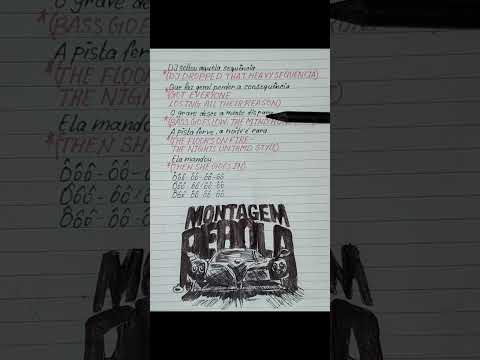 DJ soltou aquela sequência
*(DJ DROPPED THAT HEAVY SEQUENCIA)
Que faz geral perder a consequência
*(GOT EVERYONE
LOSING ALL THEIR REASON)
O grave desce a mente dispara
*(BASS GOES LOW, THE MIND
A pista ferve, a noite é rara
*(THE FLOOR'S ON FIRE
THE NIGHTS UNTAMED STYLE)
Ela mandou
*(THEN SHE GOES IN)
Ôôô-ôô-ôô-ôô
Ôôô-ôô-ôô-ôô
Ôôô-ôô-ôô-ôô
MONTAGEM
REBOLA